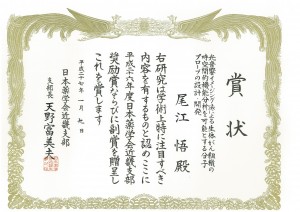 賞状
光音響イメージングによる生体がん組織の
時空間的機能分析を可能とする分子
プローブの設計・開発
尾江 悟 殿
右研究は学術上特に注目すべき
内容を有するものと認めここに
平成二十六年度日本薬学会近畿支部
奨励賞ならびに副賞を贈呈し
これを賞します
平成二十七年一月
日本薬学会近畿支部
支部長 天野富美夫